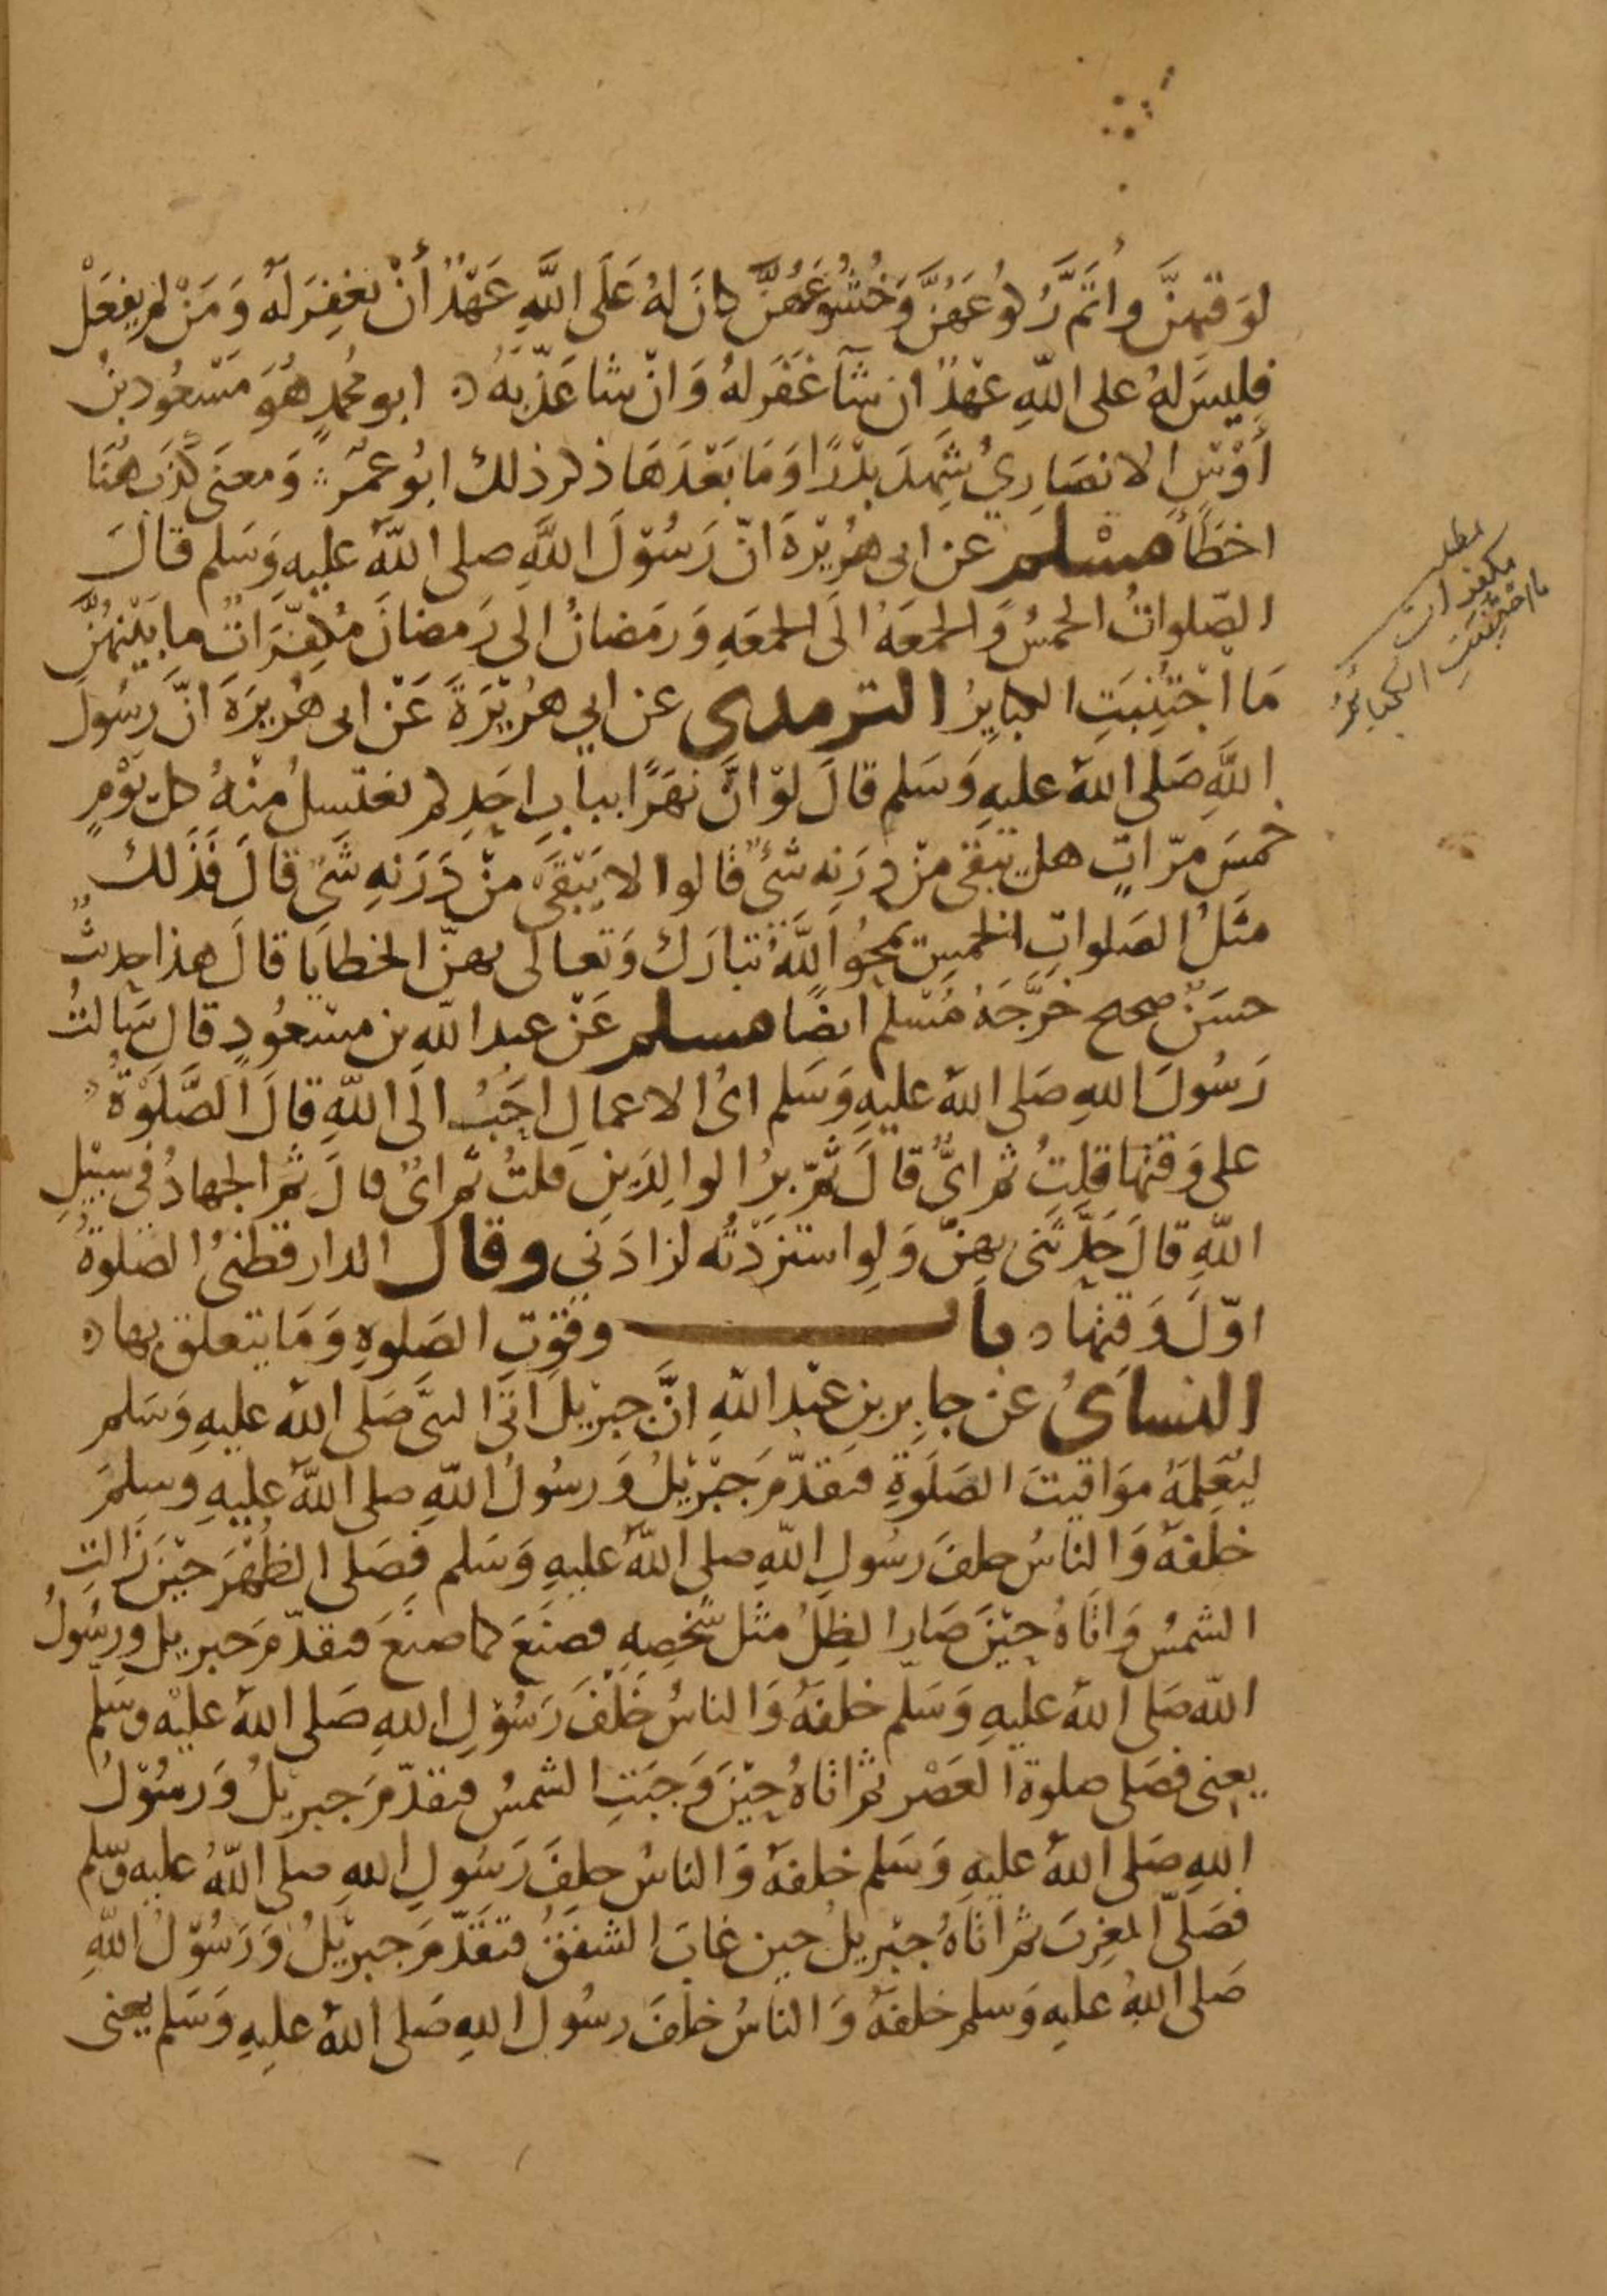 لوَقتهنَّ واتَمَّ رُكوُعَهُنَّ وَخُشُوعَهُنَّ كانَ لهُ عَلَى اللَّهِ عَهْدٌ أنْ يغفِرَ لَهُ وَمَنْ لم يفعَلْ
فليسَ لهُ على اللّهِ عهْدٌ ان شآ غفَر لهُ وَانْ شا عَذّبهُ ابو محُمدٍ هُوَ مَسْعُود بنُ
أوْسٍ الانصَارِيُ شَهِدَ بدْرًا وَمَا بَعْدَهَا ذكر ذلك ابُو عمَرَ وَمعنَى كَذَبَ هُنَا
اخطَأَ مسْلم عن ابى هُرَيْرَةَ انّ رَسُوْلَ اللَّهِ صلى اللّهُ عليهِ وَسَلم قالَ
الصّلواتُ الخمسُ وَالجمعَهُ الَى الجمعَهِ وَرمَضانُ الى رَمضانَ مُكفِّرَاتٌ ما بَيْنهُنَّ
مَا اجْتُنِبَتِ الكبايِرُ الترمدى عن ابي هُرَيْرَةَ عَنْ ابى هُرَيرَةَ انَّ رَسُولَ
اللَّهِ صَلى اللهُ عليهِ وَسَلم قالَ لوْ انَّ نهَرًا ببابِ احَدِكم يغتسلُ منْهُ كل يَوْمٍ
خمسَ مرّاتٍ هل يَبقى مِنْ دَرَنه شئٌ قالوا لا يَبْقَى مِنْ دَرَنهِ شَىٌ قالَ فذَلك
مثَلُ الصَلواتِ الخمسِ يمحُو اللَّهُ تباركَ وَتعالى بهنّ الخطايَا قالَ هذا حديثٌ
حسَنٌ صحيح خرَّجَهُ مُسْلم ايضًا مسلم عَنْ عبد اللهِ بن مسْعُودٍ قالَ سَالتُ
رَسُولَ اللهِ صَلى اللهُ عليهِ وَسَلم ايُ الاعمالِ احَبُ الَى اللّهِ قالَ الصَّلَوةُ
على وَقتهَا قلتُ ثم ايٌّ قالَ ثمّ برُ الوالِدَينِ قلتُ ثم ايٌ قالَ ثم الجهادُ فى سبيْلِ
اللّهِ قالَ حَدَّثَنى بهِنّ وَلوِ استزَدْتُه لزادَنِي وقال الدارقطنىُ الصَّلوةُ
اوّلَ وَقتهَا باب وقوتِ الصَلوةِ وَمَا يتعلق بها
النساىُ عن جابِر بنِ عبْد اللهِ انَّ جبْريْلَ اتَى النبىَّ صَلى اللهُ عليهِ وَسَلم
ليُعَلِّمَهُ موَاقيتَ الصَلَوةِ فتقدّمَ جَبْريْلُ وَرسُولُ اللّهِ صلى اللّهُ عليهِ وسلمَ
خلفهُ وَالناسُ خلفَ رسُولِ اللّهِ صلى اللّهُ عليهِ وَسَلم فصَلى الظهْرَ حيْنَ زَالتِ
الشمسُ وَاتاهُ حيْنَ صَار الظِلُ مثل شَخصِهِ فصنَعَ كما صنَعَ فتقدّمَ جبريل ورسُولُ
اللّه صَلى اللهُ عليهِ وَسَلم خلفهُ وَالناسُ خَلْفَ رَسُوْلِ اللهِ صَلى اللهُ عليْهِ وسَلم
يعنى فصَلى صلوةَ العَصْر ثم اتاهُ حِيْنَ وَجبَتِ الشمسُ فتقدّمَ جبريْلُ وَرسُوْلُ
اللهِ صَلى اللهُ عليهِ وَسَلم خلفهُ وَالناسُ خلفَ رَسُولِ اللهِ صلى اللّهُ عليهِ وسّلم
فصَلّى المغرِبَ ثم اتاهُ جبْريلُ حين غابَ الشفقُ فتقَدّمَ جبريْلُ وَرَسُوْلُ اللَّهِ
صَلى اللهُ عليهِ وَسلم خلفهُ وَالناسُ خلفَ رسُول اللهِ صَلى اللهُ عليهِ وَسَلم يعنى
مطلب
مكفرات
ما اجْتُنِبَتِ الكبائرُ